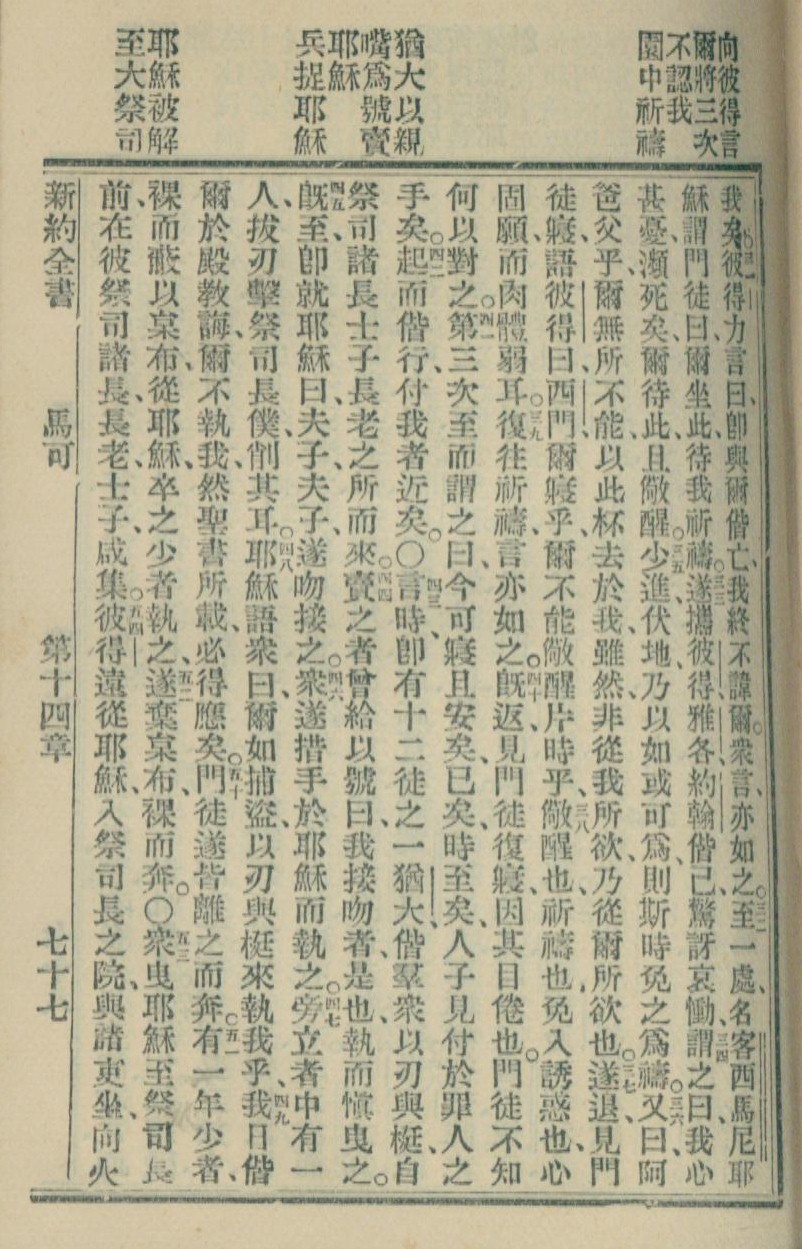 向彼得言
爾將三次
不認我
園中祈禱
猶大以親
嘴爲號賣
耶穌
兵捉耶穌
耶穌被解
至大祭司
我矣、三一彼得力言曰、卽與爾偕亡、我終不諱爾。衆言亦如之。三二至一處、名客西馬尼、耶
穌謂門徒曰、爾坐此、待我祈禱。三三遂攜彼得、雅各、約翰偕己、驚訝哀慟、三四謂之曰、我心
甚憂、瀕死矣、爾待此、且儆醒。三五少進、伏地、乃以如或可爲、則斯時免之爲禱。三六又曰、阿
爸父乎、爾無所不能、以此杯去於我、雖然、非從我所欲、乃從爾所欲也。三七遂退、見門
徒寢、語彼得曰、西門、爾寢乎、爾不能儆醒片時乎、三八儆醒也、祈禱也、免入誘惑也、心
固願、而肉體弱耳。三九復往祈禱、言亦如之。四十旣返、見門徒復寢、因其目倦也。門徒不知
何以對之。四一第三次至、而謂之曰、今可寢且安矣、已矣、時至矣、人子見付於罪人之
手矣。四二起而偕行、付我者近矣。〇四三言時、卽有十二徒之一猶大、偕羣衆以刃與梃、自
祭司諸長士子長老之所而來。四四賣之者曾給以號曰、我接吻者是也、執而愼曳之。
四五旣至、卽就耶穌曰、夫子、夫子、遂吻接之。四六衆遂措手於耶穌而執之。四七旁立者中有一
人、拔刃擊祭司長僕、削其耳。四八耶穌語衆曰、爾如捕盜、以刃與梃來執我乎、四九我日偕
爾於殿教誨、爾不執我、然聖書所載、必得應矣。五十門徒遂皆離之而奔。五一有一年少者、
裸而蔽以枲布、從耶穌、卒之少者執之、五二遂棄枲布、裸而奔。〇五三衆曳耶穌至祭司長
前、在彼祭司諸長、長老、士子、咸集。五四彼得遠從耶穌、入祭司長之院、與諸吏坐、向火
新約全書 馬可 第十四章 七十七